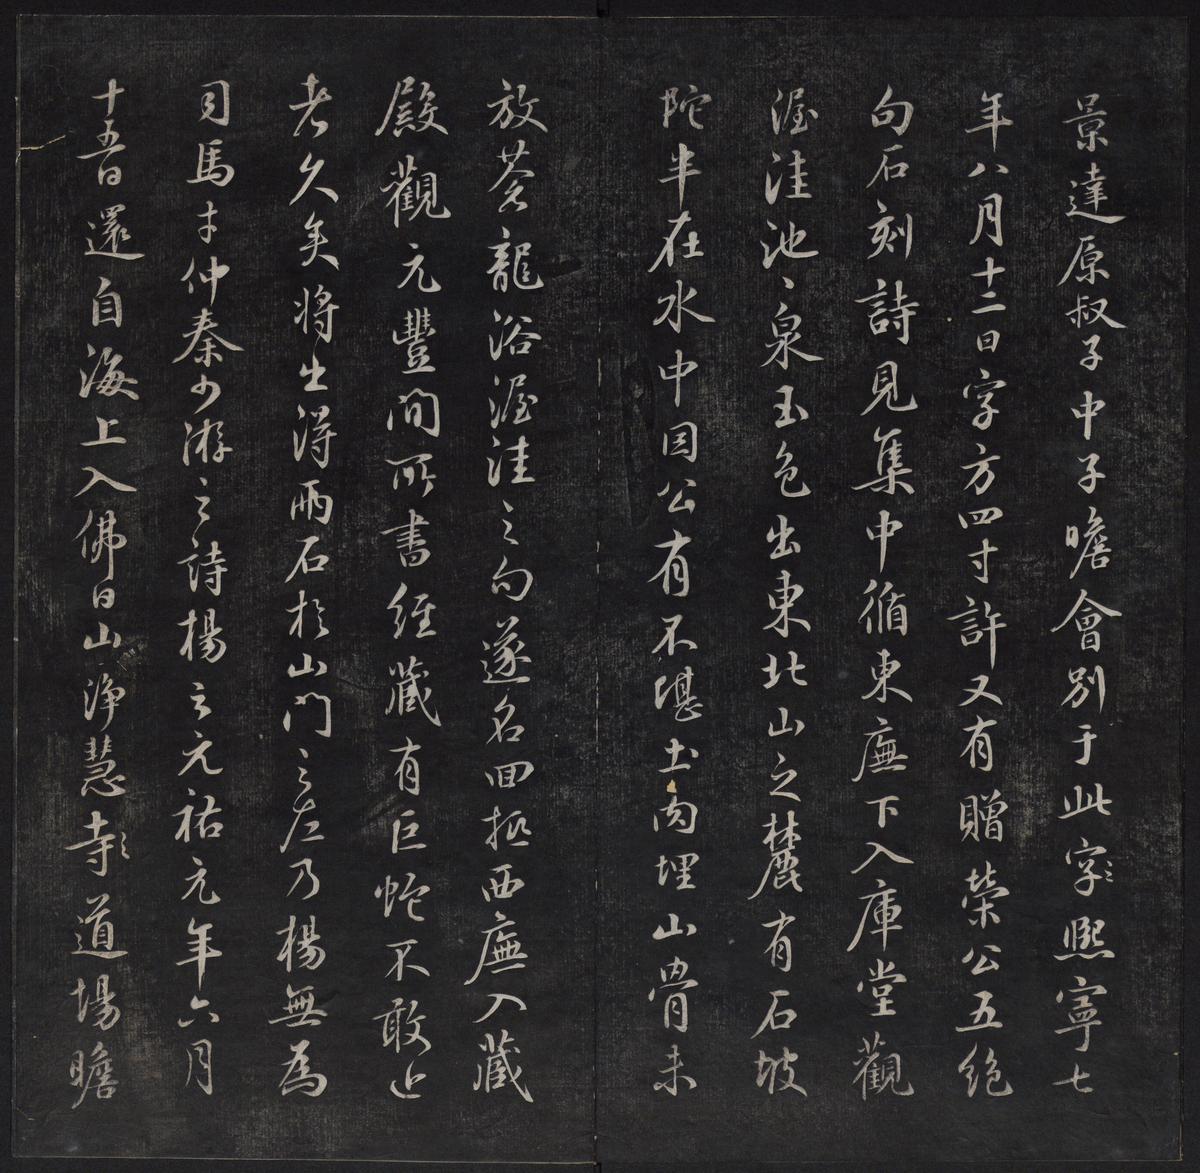 景達原叔子中子瞻會別于此字熙寧七
年八月十二日字方四寸許又有贈榮公五絕
句石刻詩見集中循東廡下入庫堂觀
渥洼池〻泉玉色出東北山之麓有石坡
陀半在水中因公有不堪土肉埋山骨未
放蒼龍浴渥洼之句遂名回抵西廡入藏
殿觀元豐間所書經藏有巨蛇不敢近
者久矣將出得兩石於山門之左乃楊無為
司馬才仲秦少游之詩楊云元祐元年六月
十五日還自海上入佛日山淨慧寺道場瞻